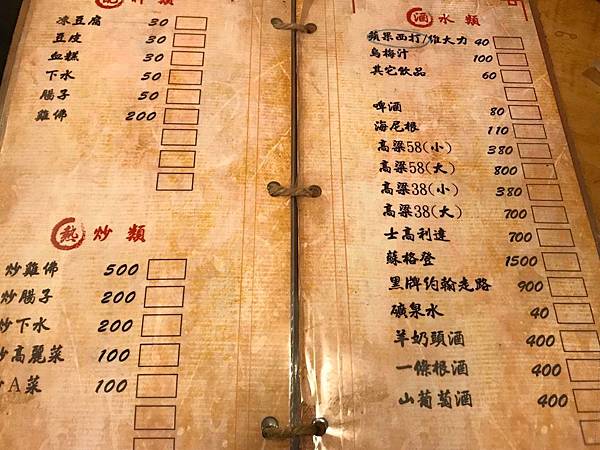 料類
冰豆腐 30
豆皮 30
血糕 30
下水 50
腸子 50
雞佛 200
熱炒類
炒雞佛 500
炒腸子 200
炒下水 200
炒高麗菜 100
A菜 100
酒水類
蘋果西打/維大力 40
烏梅汁 100
其它飲品 60
啤酒 80
海尼根 110
高梁58(小) 380
高梁58(大) 800
高梁38(小) 380
高梁38(大) 700
士高利達 700
蘇格登 1500
黑牌約翰走路 900
礦泉水 40
羊奶頭酒 400
一條根酒 400
山葡萄酒 400